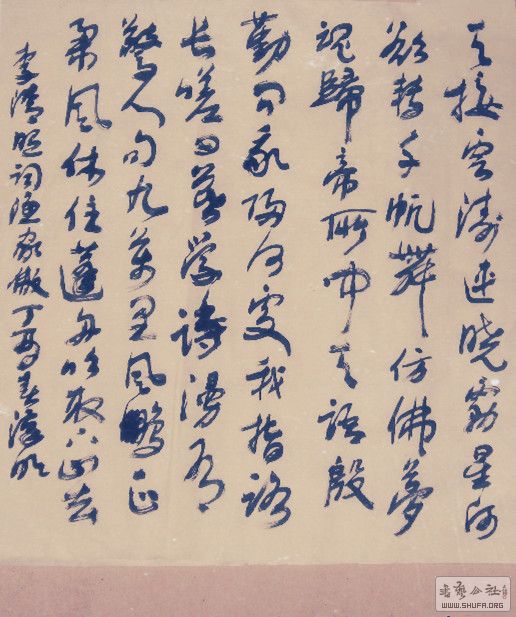 天接雲濤連曉霧星河
欲轉千帆舞仿佛夢
魂歸帝所聞天語殷
勤問我歸何處我報路
長嗟日暮學詩漫有
驚人句九萬里風鵬正
舉風休住蓬舟吹取三山去
李清照詞漁家傲丁酉春
書藝公社
WWW.SHUFA.ORG